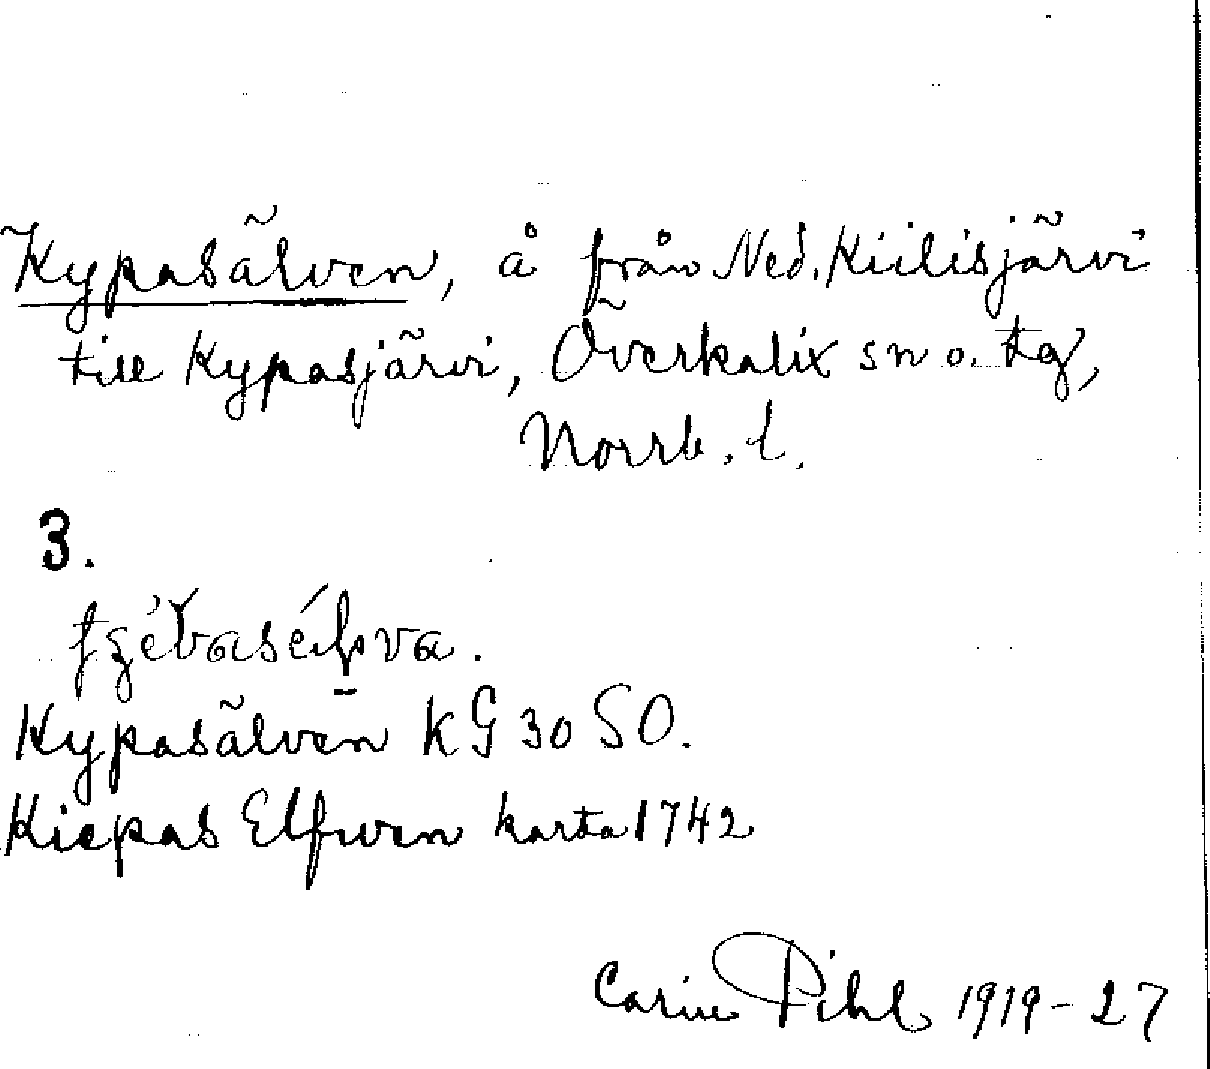 Kypasälven, å från Ned. Kiilisjärvi
till Kypasjärvi, Överkalix sn o. tg,
Norrb. l.
3.
Kypasälven KG 30 SO.
Kiepas Elfwen karta 1742
Carin Pihl 1919-27